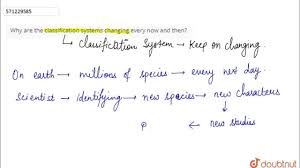 571229585
Why are the classification systems changing every now and then?
↳ Classification System → Keep on changing.
On earth → millions of species → every next day.
Scientist → identifying → new species → new characters
↓
P ← new studies
doubtnut